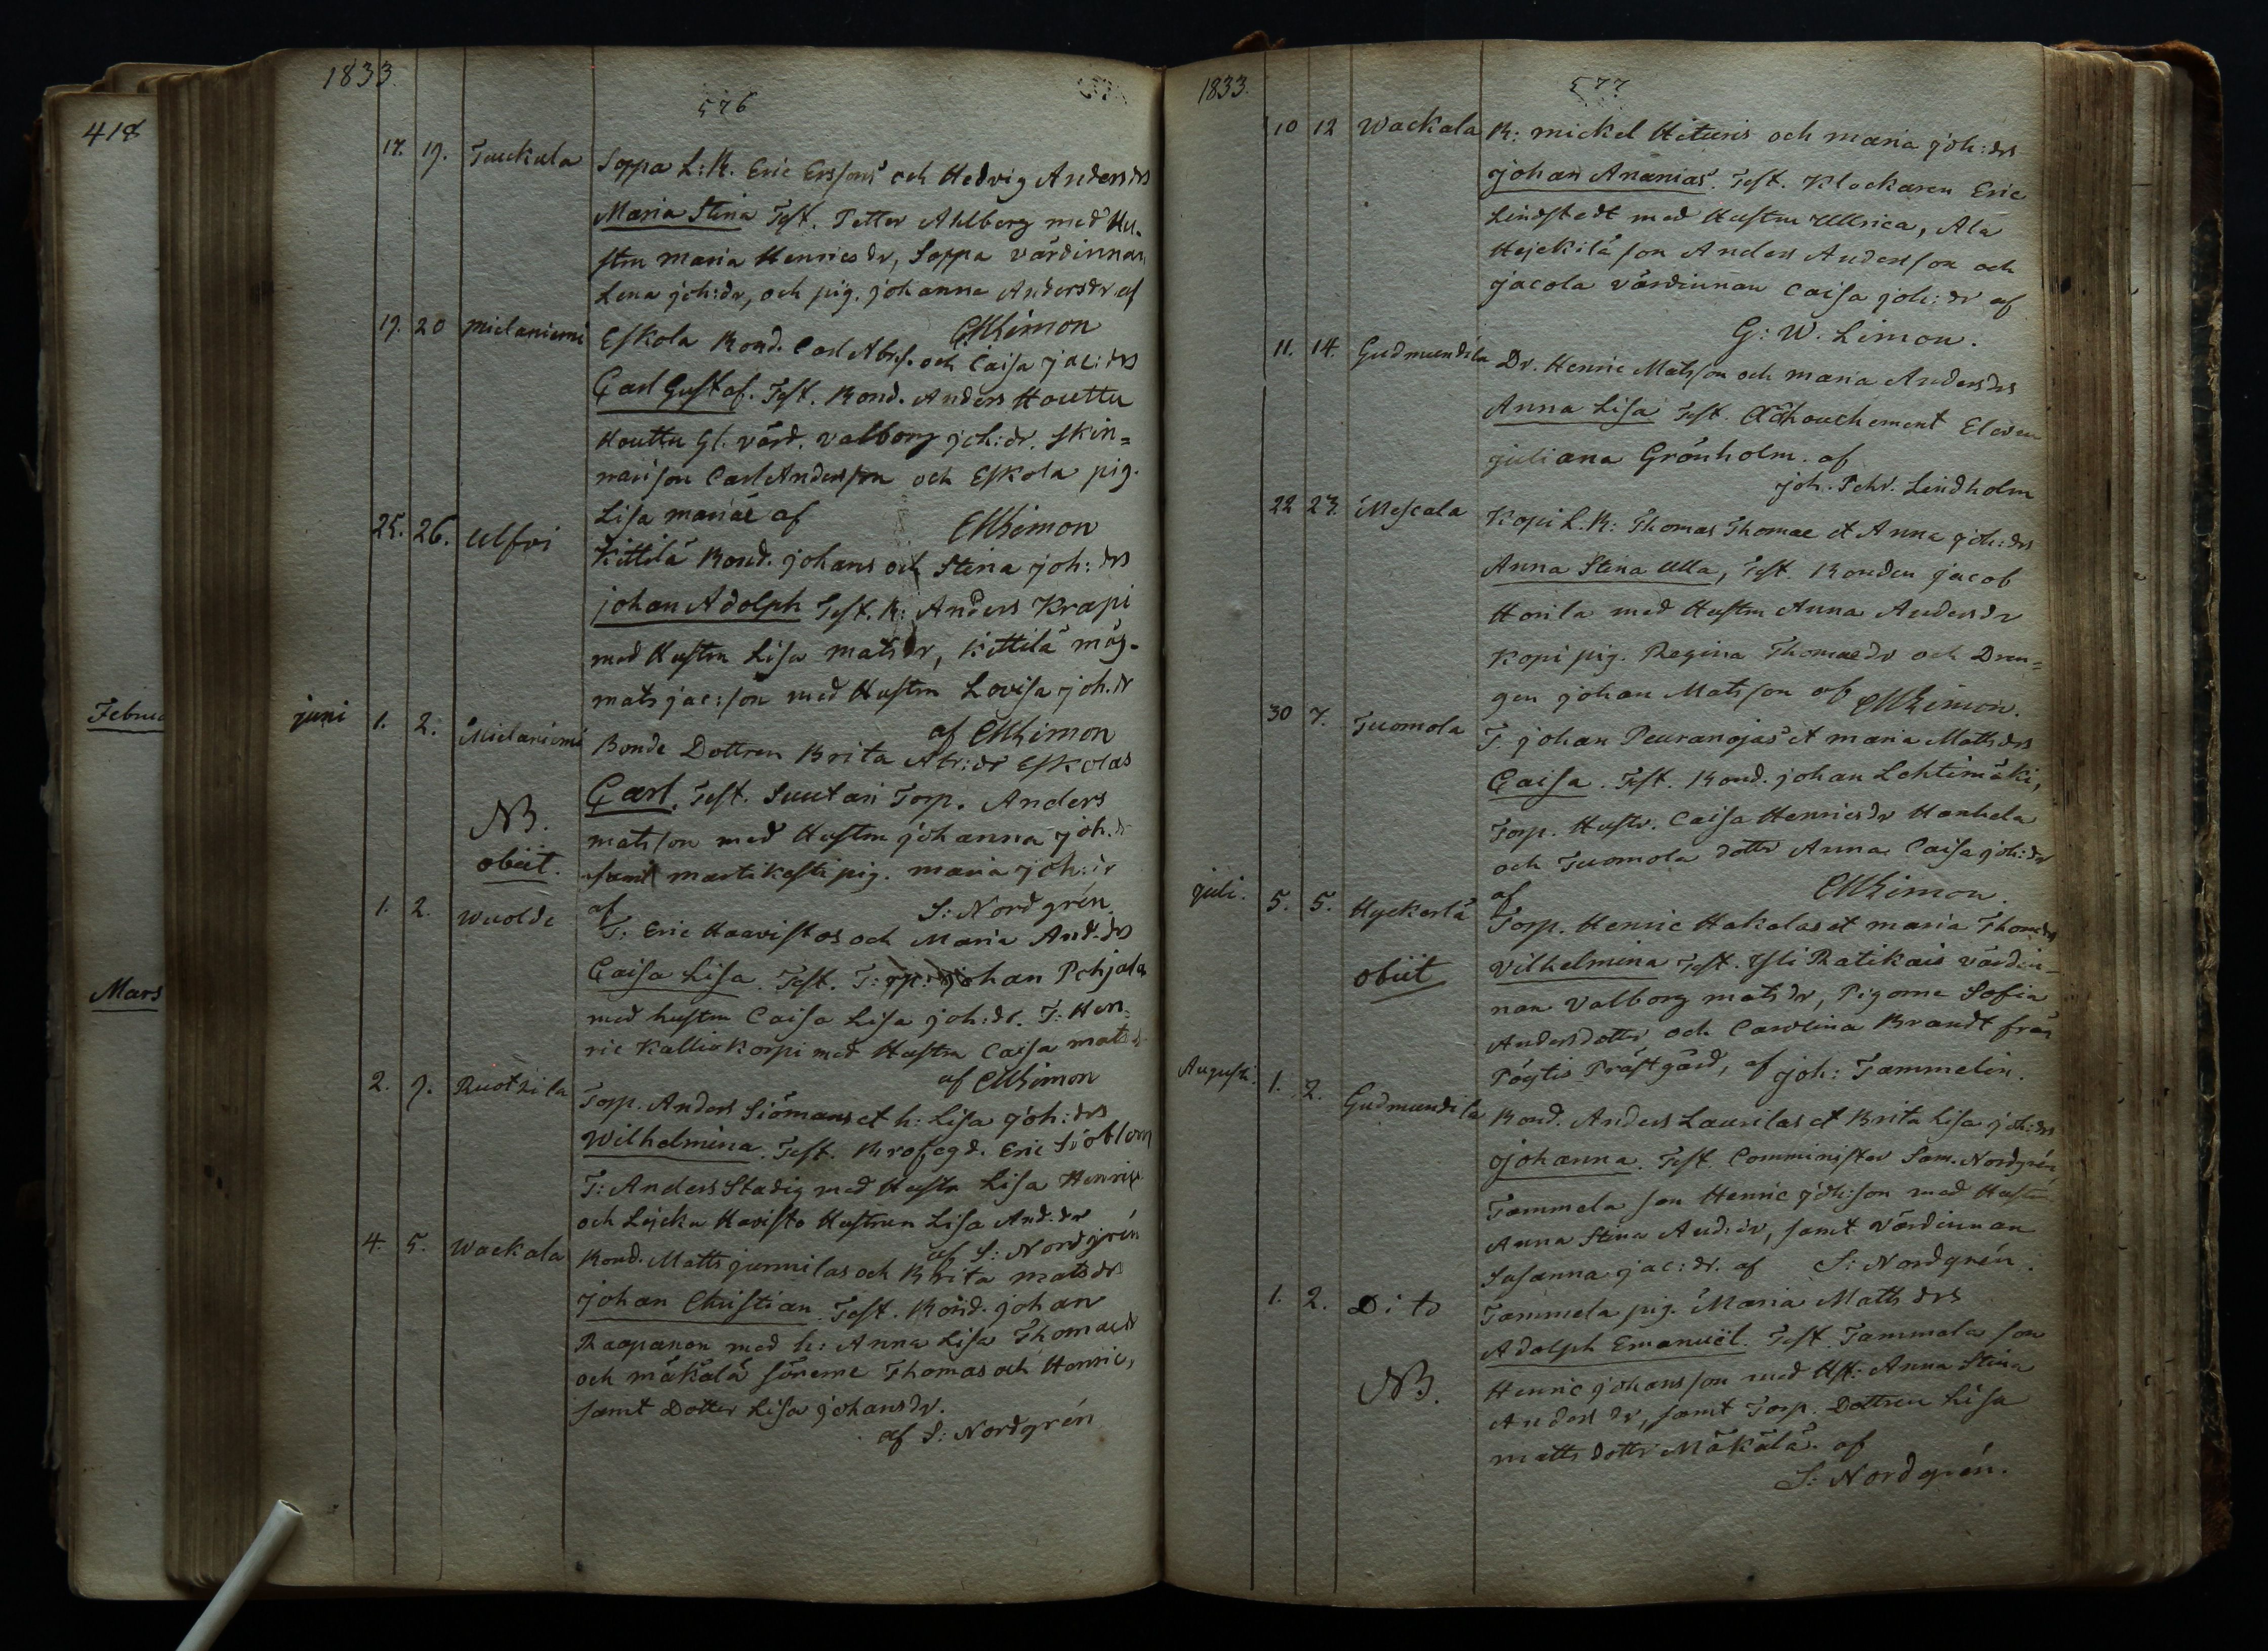 418
Februa
Mars
1833.
576
17. 19. Tuckula Soppa L:B. Eric Ersons och Hedvig Andersdrs
Maria Stina Test. Petter Ahlberg med Hu-
stru Maria Henricsdr, Soppa värdinnan
Lena joh:dr, och pig. johanna Andersdr af
GWLimon
19. 20 Mielaniemi Eskola Bond. Carl Abr.s. och Caisa jac:drs
Carl Gustaf. Test. Bond. Anders Houttu
Houttu Gl. värd. Valborg joh:dr. Skin=
narison Carl Anderson och Eskola pig.
Lisa mariæ af GWLimon
25. 26. Ulfvi Kittilä Bond. johans och Stina joh:drs
johan Adolph Test. B: Anders Krapi
med Hustru Lisa Matsdr, Kittilä måg-
mats jac:son med Hustru Lovisa joh.dr
af GWLimon
juni 1. 2. Mielaniemi Bonde Dottren Brita Abr:dr Eskolas
Carl. Test. Suutari Torp. Anders
NB. matsson med Hustru johanna joh.dr
obiit. samt martikesti pig. maria joh:dr
af S: Nordgrén
1. 2. Wuolde T: Eric Haavistos och Maria And:drs
Caisa Lisa. Test. T: johan Pohjala
med hustru Caisa Lisa joh:dr. T: Hen=
ric Kalliokorpi med Hustru Caisa mats dr
af GWLimon
2. 9. Ruotzila Torp. Anders Siömans et h: Lisa joh:drs
Wilhelmina. Test. Brofogd. Eric Siöblom
T: Anders Stadig med Hustr Lisa Henrics
och Lejcku Havisto Hustrun Lisa And:dr
af S: Nordgrén
4. 5. Wackala Bond. Matts junnilas och Brita matsdrs
johan Christian. Test. Bond. johan
Raapanen med h: Anna Lisa Thomaedr
och mäkälä sönerne Thomas och Henric,
samt Dotter Lisa johansdr.
af S: Nordgrén
1833.
577
10 12 Wackala B: mickel Hituris och maria joh:drs
johan Ananias. Test. Klockaren Eric
Lindstedt med Hustru Ullrica, Ala
Hejckilä son Anders Anderson och
jacola värdinnan Caisa joh:dr af
G: W. Limon.
11. 14. Gudmundila Dr. Henric Matsson och maria Andersdrs
Anna Lisa Test. Accouchement Eleven
juliana Grönholm. af
joh. Fehr. Lindholm
22 23. Mescala Kopi L.B: Thomas Thomae et Anna joh:drs
Anna Stina Ulla, Test. Bonden jacob
Honila med Hustru Anna Andersdr
Kopi pig. Regina Thomaedr och Dren=
gen johan Matsson af GWLimon.
30 7. Tuomola T. johan Peuranojas et maria Mattsdrs
Caisa. Test. Bond. johan Lehtimäki,
Torp. Hustr. Caisa Henricsdr Hanhela
och Tuomola dottr Anna Caisa joh:dr
af GWLimon.
juli. 5. 5. Hyckerlä Torp. Henric Hakalas et maria Thomdrs
obiit Vilhelmina Test. Yli Ratikais värdin-
nan Valborg matsdr, Pigorne Sofia
Andersdotter, och Carolina Brandt från
Pöytis Prästgård, af joh: Tammelin.
Augusti. 1. 2. Gudmundila Bond. Anders Laurilas et Brita Lisa joh:drs
johanna. Test. Comminister Sam. Nordgrén
Tammela son Henric joh:son med Hustru
Anna Stina And:dr, samt värdinnan
Susanna jac:dr. af S: Nordgrén.
1. 2. Dito Tammela pig. Maria Mattsdrs
Adolph Emanuel. Test. Tammela son
NB. Henric johansson med Hst: Anna Stina
Andersdr, samt Torp. Dottren Lisa
mattsdottr Mäkälä. af
S: Nordgrén.